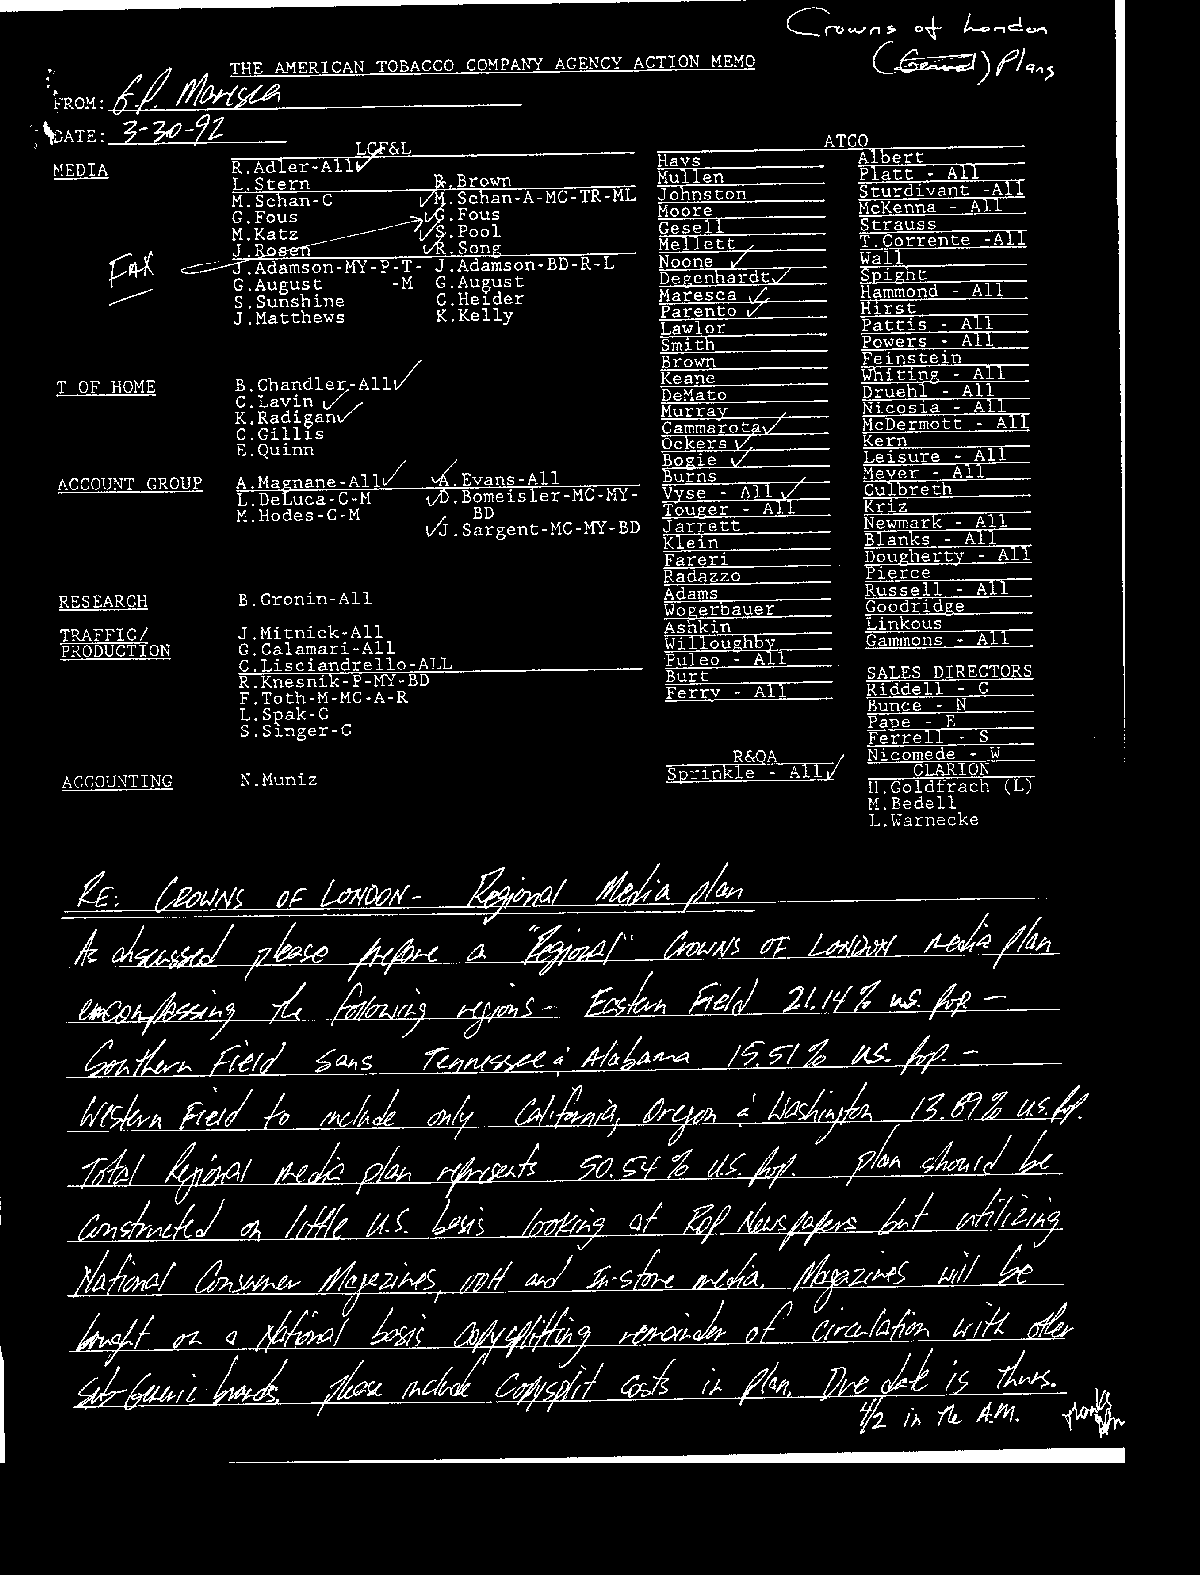 Crowns of London
(General) Plans
THE AMERICAN TOBACCO COMPANY AGENCY ACTION MEMO
FROM: G.P. Maresca
DATE: 3-30-92
LCF&L
MEDIA
R.Adler-All
L.Stern
M.Schan-C
G.Fous
M.Katz
J.Rosen
J.Adamson-MY-P-T-
G.August -M
S.Sunshine
J.Matthews
R.Brown
M.Schan-A-MC-TR-ML
G.Fous
S.Pool
R.Song
J.Adamson-BD-R-L
G.August
C.Heider
K.Kelly
FAX
T OF HOME
B.Chandler-All
C.Lavin
K.Radigan
C.Gillis
E.Quinn
ACCOUNT GROUP
A.Magnane-All
L.DeLuca-C-M
M.Hodes-C-M
A.Evans-All
D.Bomeisler-MC-MY-
BD
J.Sargent-MC-MY-BD
RESEARCH
B.Gronin-All
TRAFFIC/
PRODUCTION
J.Mitnick-All
G.Calamari-All
C.Lisciandrello-ALL
R.Knesnik-P-MY-BD
F.Toth-M-MC-A-R
L.Spak-C
S.Singer-C
ACCOUNTING
N.Muniz
ATCO
Hays
Mullen
Johnston
Moore
Gesell
Mellett
Noone
Degenhardt
Maresca
Parento
Lawlor
Smith
Brown
Keane
DeMato
Murray
Cammarota
Ockers
Bogie
Burns
Vyse - All
Touger - All
Jarrett
Klein
Fareri
Radazzo
Adams
Wogerbauer
Ashkin
Willoughby
Puleo - All
Burt
Ferry - All
R&QA
Sprinkle - All
Albert
Platt - All
Sturdivant -All
McKenna - All
Strauss
T.Corrente -All
Wall
Spight
Hammond - All
Hirst
Pattis - All
Powers - All
Feinstein
Whiting - All
Druehl - All
Nicosia - All
McDermott - All
Kern
Leisure - All
Meyer - All
Culbreth
Kriz
Newmark - All
Blanks - All
Dougherty - All
Pierce
Russell - All
Goodridge
Linkous
Gammons - All
SALES DIRECTORS
Riddell - C
Bunce - N
Pape - E
Ferrell - S
Nicomede - W
CLARION
H.Goldfrach (L)
M.Bedell
L.Warnecke
RE: CROWNS OF LONDON - Regional Media plan
As discussed please prepare a "Regional" CROWNS OF LONDON media plan
encompassing the following regions - Eastern Field 21.14% U.S. Pop -
Southern Field sans Tennessee & Alabama 15.51% U.S. Pop. -
Western Field to include only California, Oregon & Washington 13.89% U.S. Pop.
Total Regional media plan represents 50.54% U.S. Pop. plan should be
constructed on little U.S. basis looking at ROP Newspapers but utilizing
National Consumer Magazines, OOH and In-store media. Magazines will be
bought on a National basis copysplitting remainder of circulation with other
Sub-Generic brands. please include Copysplit costs in plan. Due date is thurs.
4/2 in the A.M.